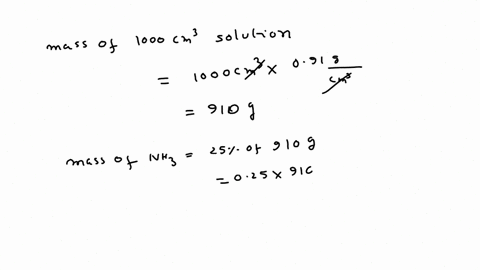 mass of 1000 cm³ solution
= 1000 cm³ × 0.91 g/cm³
= 910 g
mass of NH₃ = 25% of 910 g
= 0.25 × 910